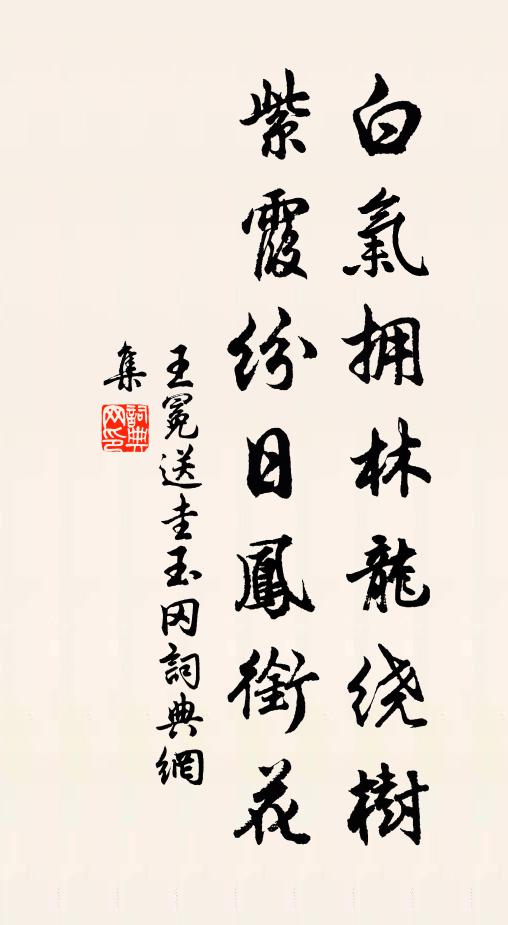 白氣拥林龍绕樹
紫霞纷日鳳銜花
王冕送圭玉冈詞典網
集
詞典
网印